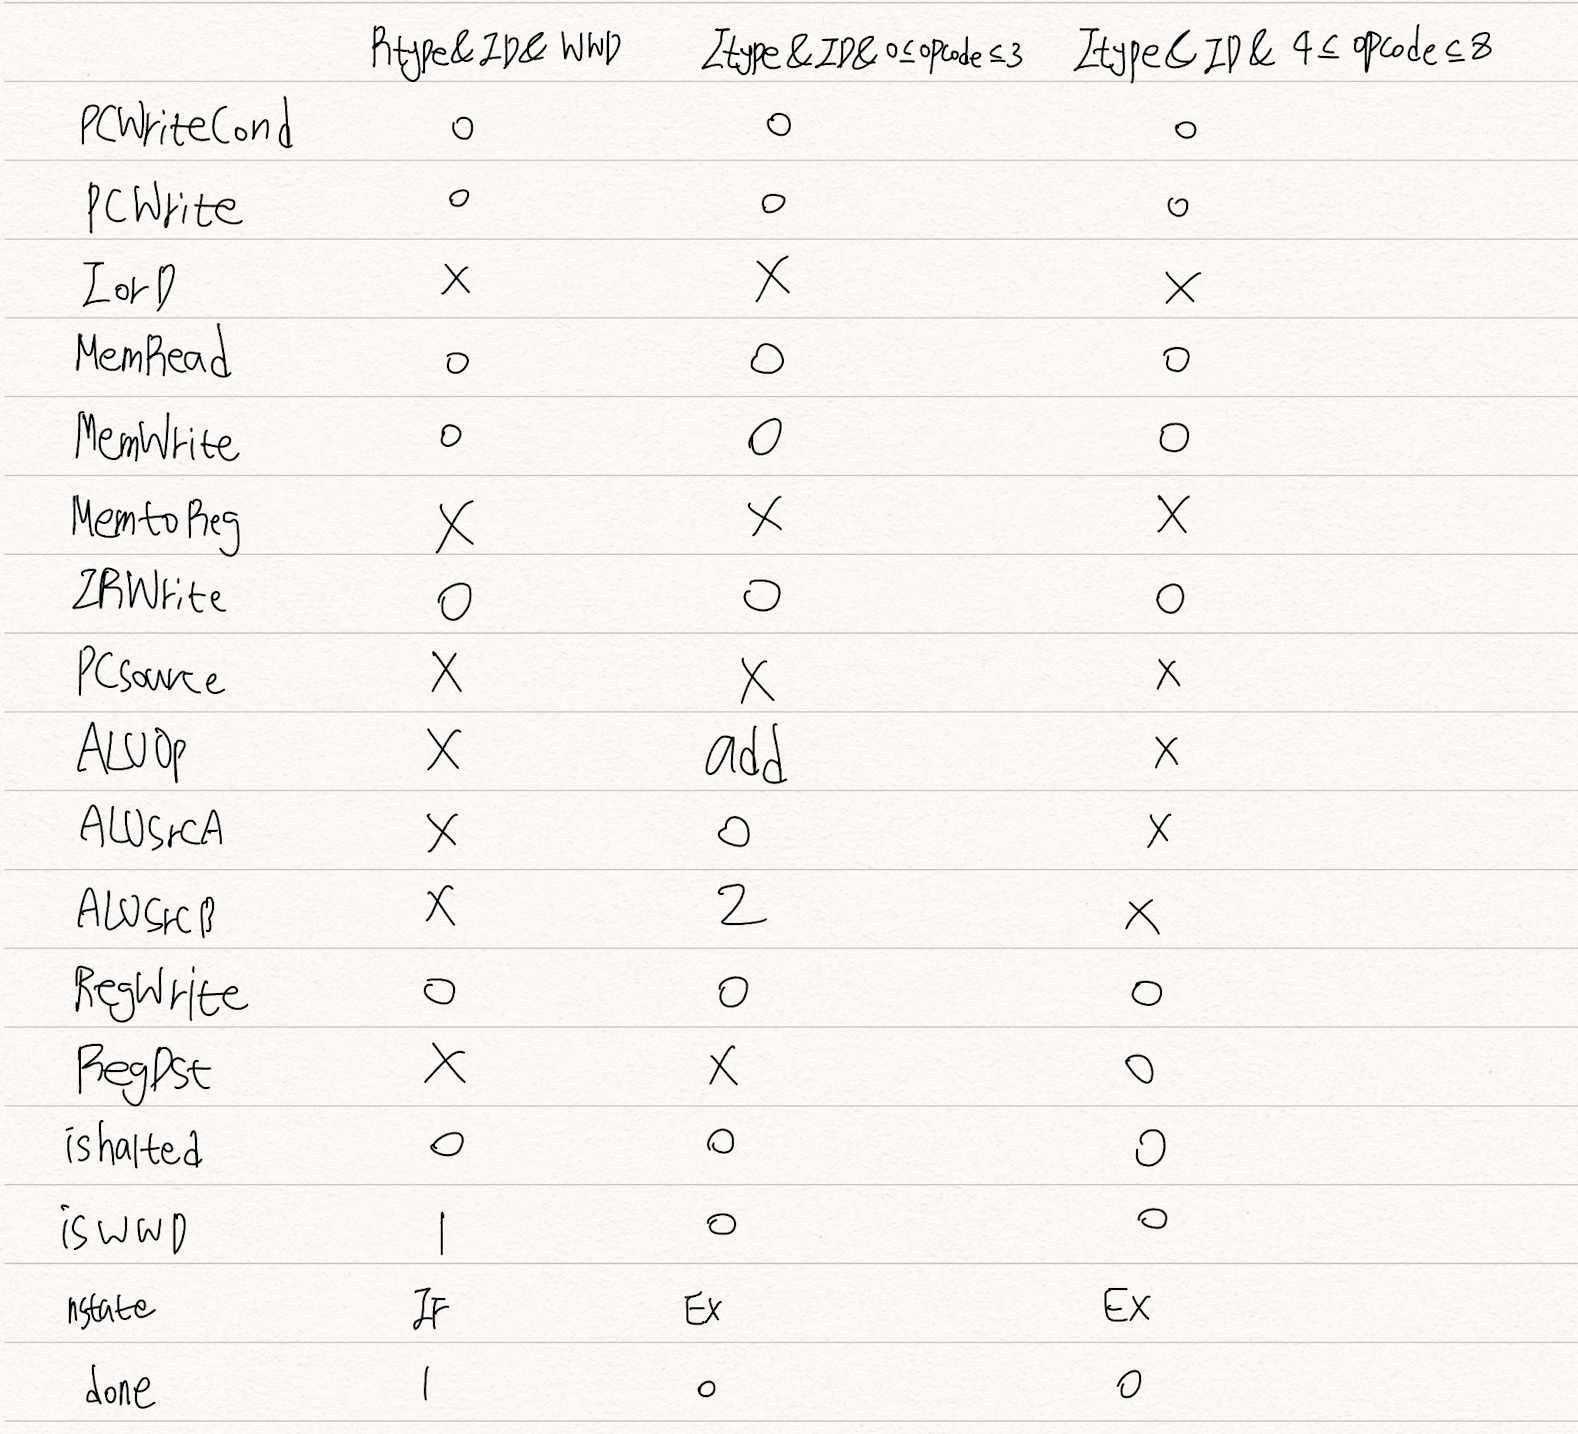 Rtype & ID & WWD Itype & ID & 0≤opcode≤3 Itype & ID & 4≤opcode≤8
PCWriteCond 0 0 0
PCWrite 0 0 0
IorD X X X
MemRead 0 0 0
MemWrite 0 0 0
MemtoReg X X X
IRWrite 0 0 0
PCsource X X X
ALUOp X add X
ALUSrcA X 0 X
ALUSrcB X 2 X
RegWrite 0 0 0
RegDst X X 0
ishalted 0 0 0
isWWD 1 0 0
nstate IF EX EX
done 1 0 0